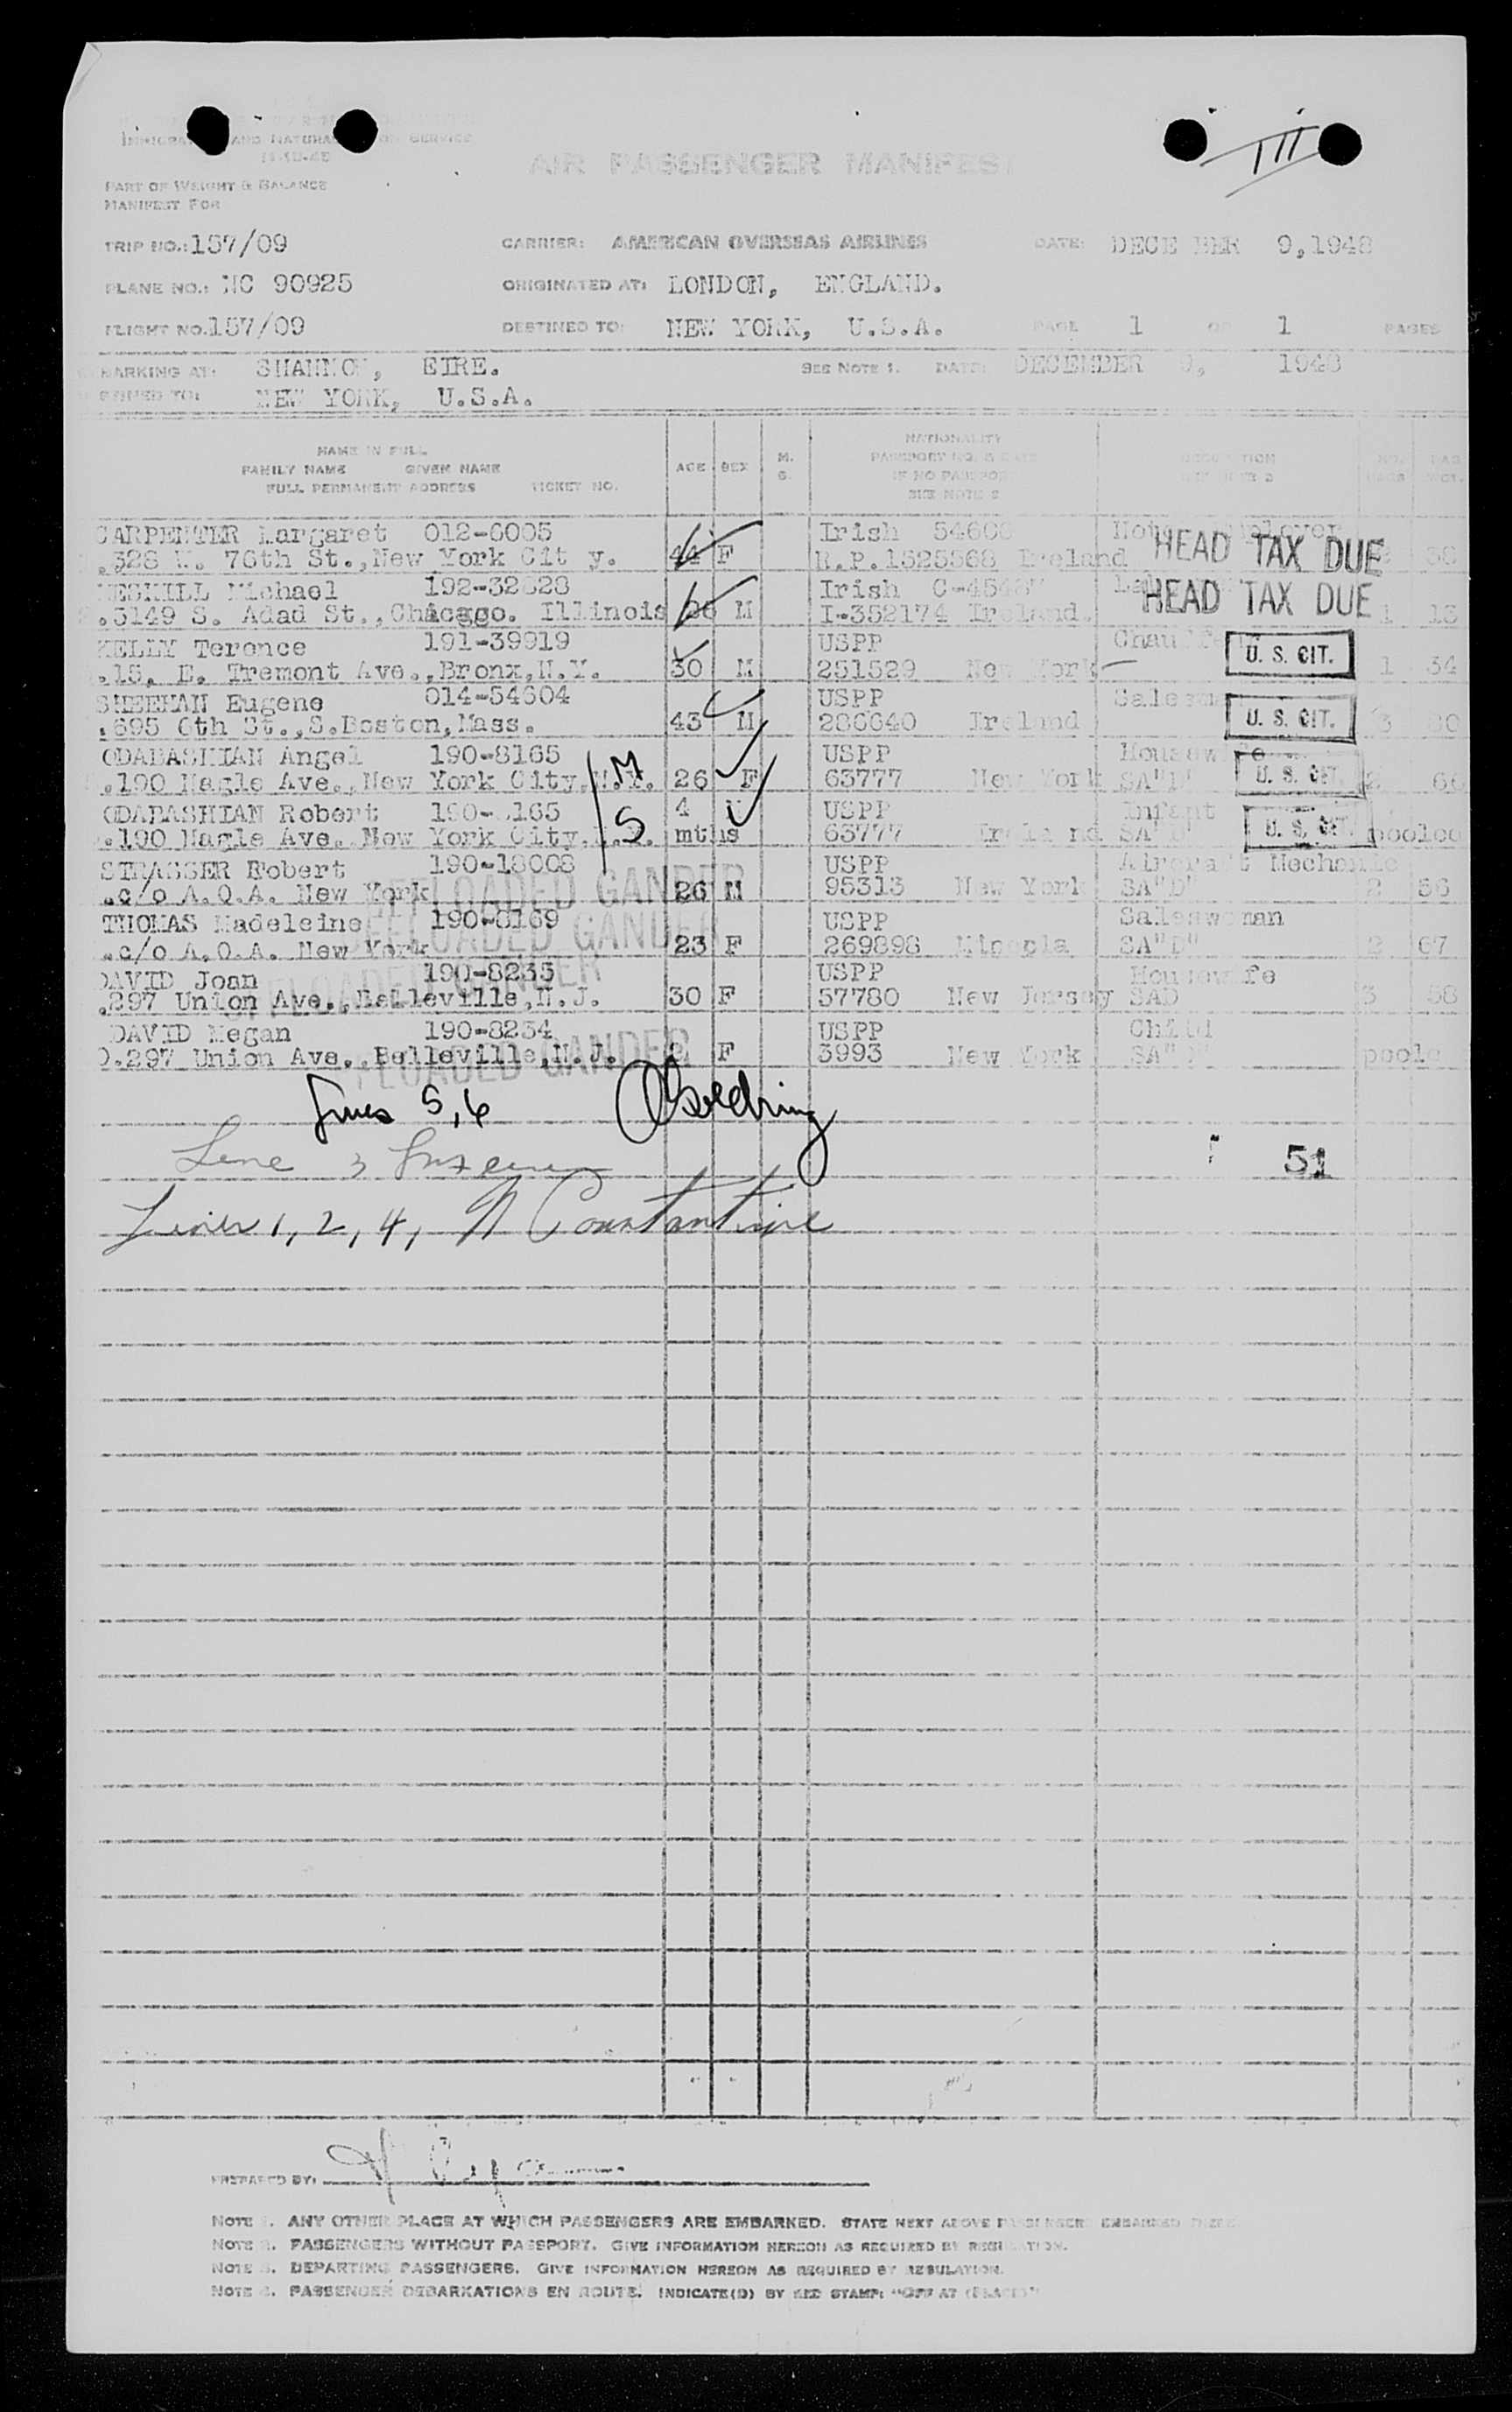 III
AIR PASSENGER MANIFEST
PART OF WEIGHT & BALANCE
MANIFEST FOR
TRIP NO.: 157/09 CARRIER: AMERICAN OVERSEAS AIRLINES DATE: DECE BER 9,1948
PLANE NO.: NC 90925 ORIGINATED AT: LONDON, ENGLAND.
FLIGHT NO. 157/09 DESTINED TO: NEW YORK, U.S.A. PAGE 1 OF 1 PAGES
BARKING AT: SHANNON, EIRE. SEE NOTE 1. DATE: DECEMBER 9, 1948
NEW YORK, U.S.A.
NAME IN FULL
FAMILY NAME GIVEN NAME
FULL PERMANENT ADDRESS TICKET NO. AGE SEX M. S. NATIONALITY
CARPENTER Margaret 012-6005 Irish
.328 W. 76th St., New York Cit y. 44 F R.P.1525568 Ireland HEAD TAX DUE
Michael Irish
.5149 S. Adad St., Chicago. Illinois M I-352174 Ireland. HEAD TAX DUE 1
KELLY Terence 191-39919 USPP
.15, E. Tremont Ave., Bronx, N.Y. 30 M 251529 New York U. S. CIT. 1 34
SHEEHAN Eugene 014-54604 USPP
.695 6th St., S.Boston, Mass. 43 M 286640 Ireland U. S. CIT. 3
ODABASHIAN Angel 190-8165 USPP Housewife
.190 Nagle Ave., New York City, N.Y. M 26 F 63777 New York SA"D" U. S. CIT. 2 66
ODABASHIAN Robert 4 USPP Infant
.190 Nagle Ave. New York City. S mths 63777 Ireland U. S. CIT. pooled
STRASSER Robert 190-18008 USPP Aircraft Mechanic
.c/o A.O.A. New York 26 M 95313 New York SA"D" 2 56
OFFLOADED GANDER
THOMAS Madeleine 190-8169 USPP Saleswoman
.c/o A.O.A. New York 23 F 269898 Mineola SA"D" 2 67
OFFLOADED GANDER
DAVID Joan 190-8235 USPP Housewife
.297 Union Ave., Belleville, N.J. 30 F 57780 New Jersey SAD 3 58
OFFLOADED GANDER
DAVID Megan 190-8234 USPP Child
.297 Union Ave., Belleville, N.J. F 3993 New York
OFFLOADED GANDER
Lines 5,6
Line 3
51
Lines 1, 2, 4, N Constantine
PREPARED BY:
NOTE 1. ANY OTHER PLACE AT WHICH PASSENGERS ARE EMBARKED. STATE NEXT ABOVE PASSENGERS EMBARKED THERE.
NOTE 2. PASSENGERS WITHOUT PASSPORT. GIVE INFORMATION HEREON AS REQUIRED BY REGULATION.
NOTE 3. DEPARTING PASSENGERS. GIVE INFORMATION HEREON AS REQUIRED BY REGULATION.
NOTE 4. PASSENGER DEBARKATIONS EN ROUTE. INDICATE(D) BY RED STAMP: "OFF AT (PLACE)"